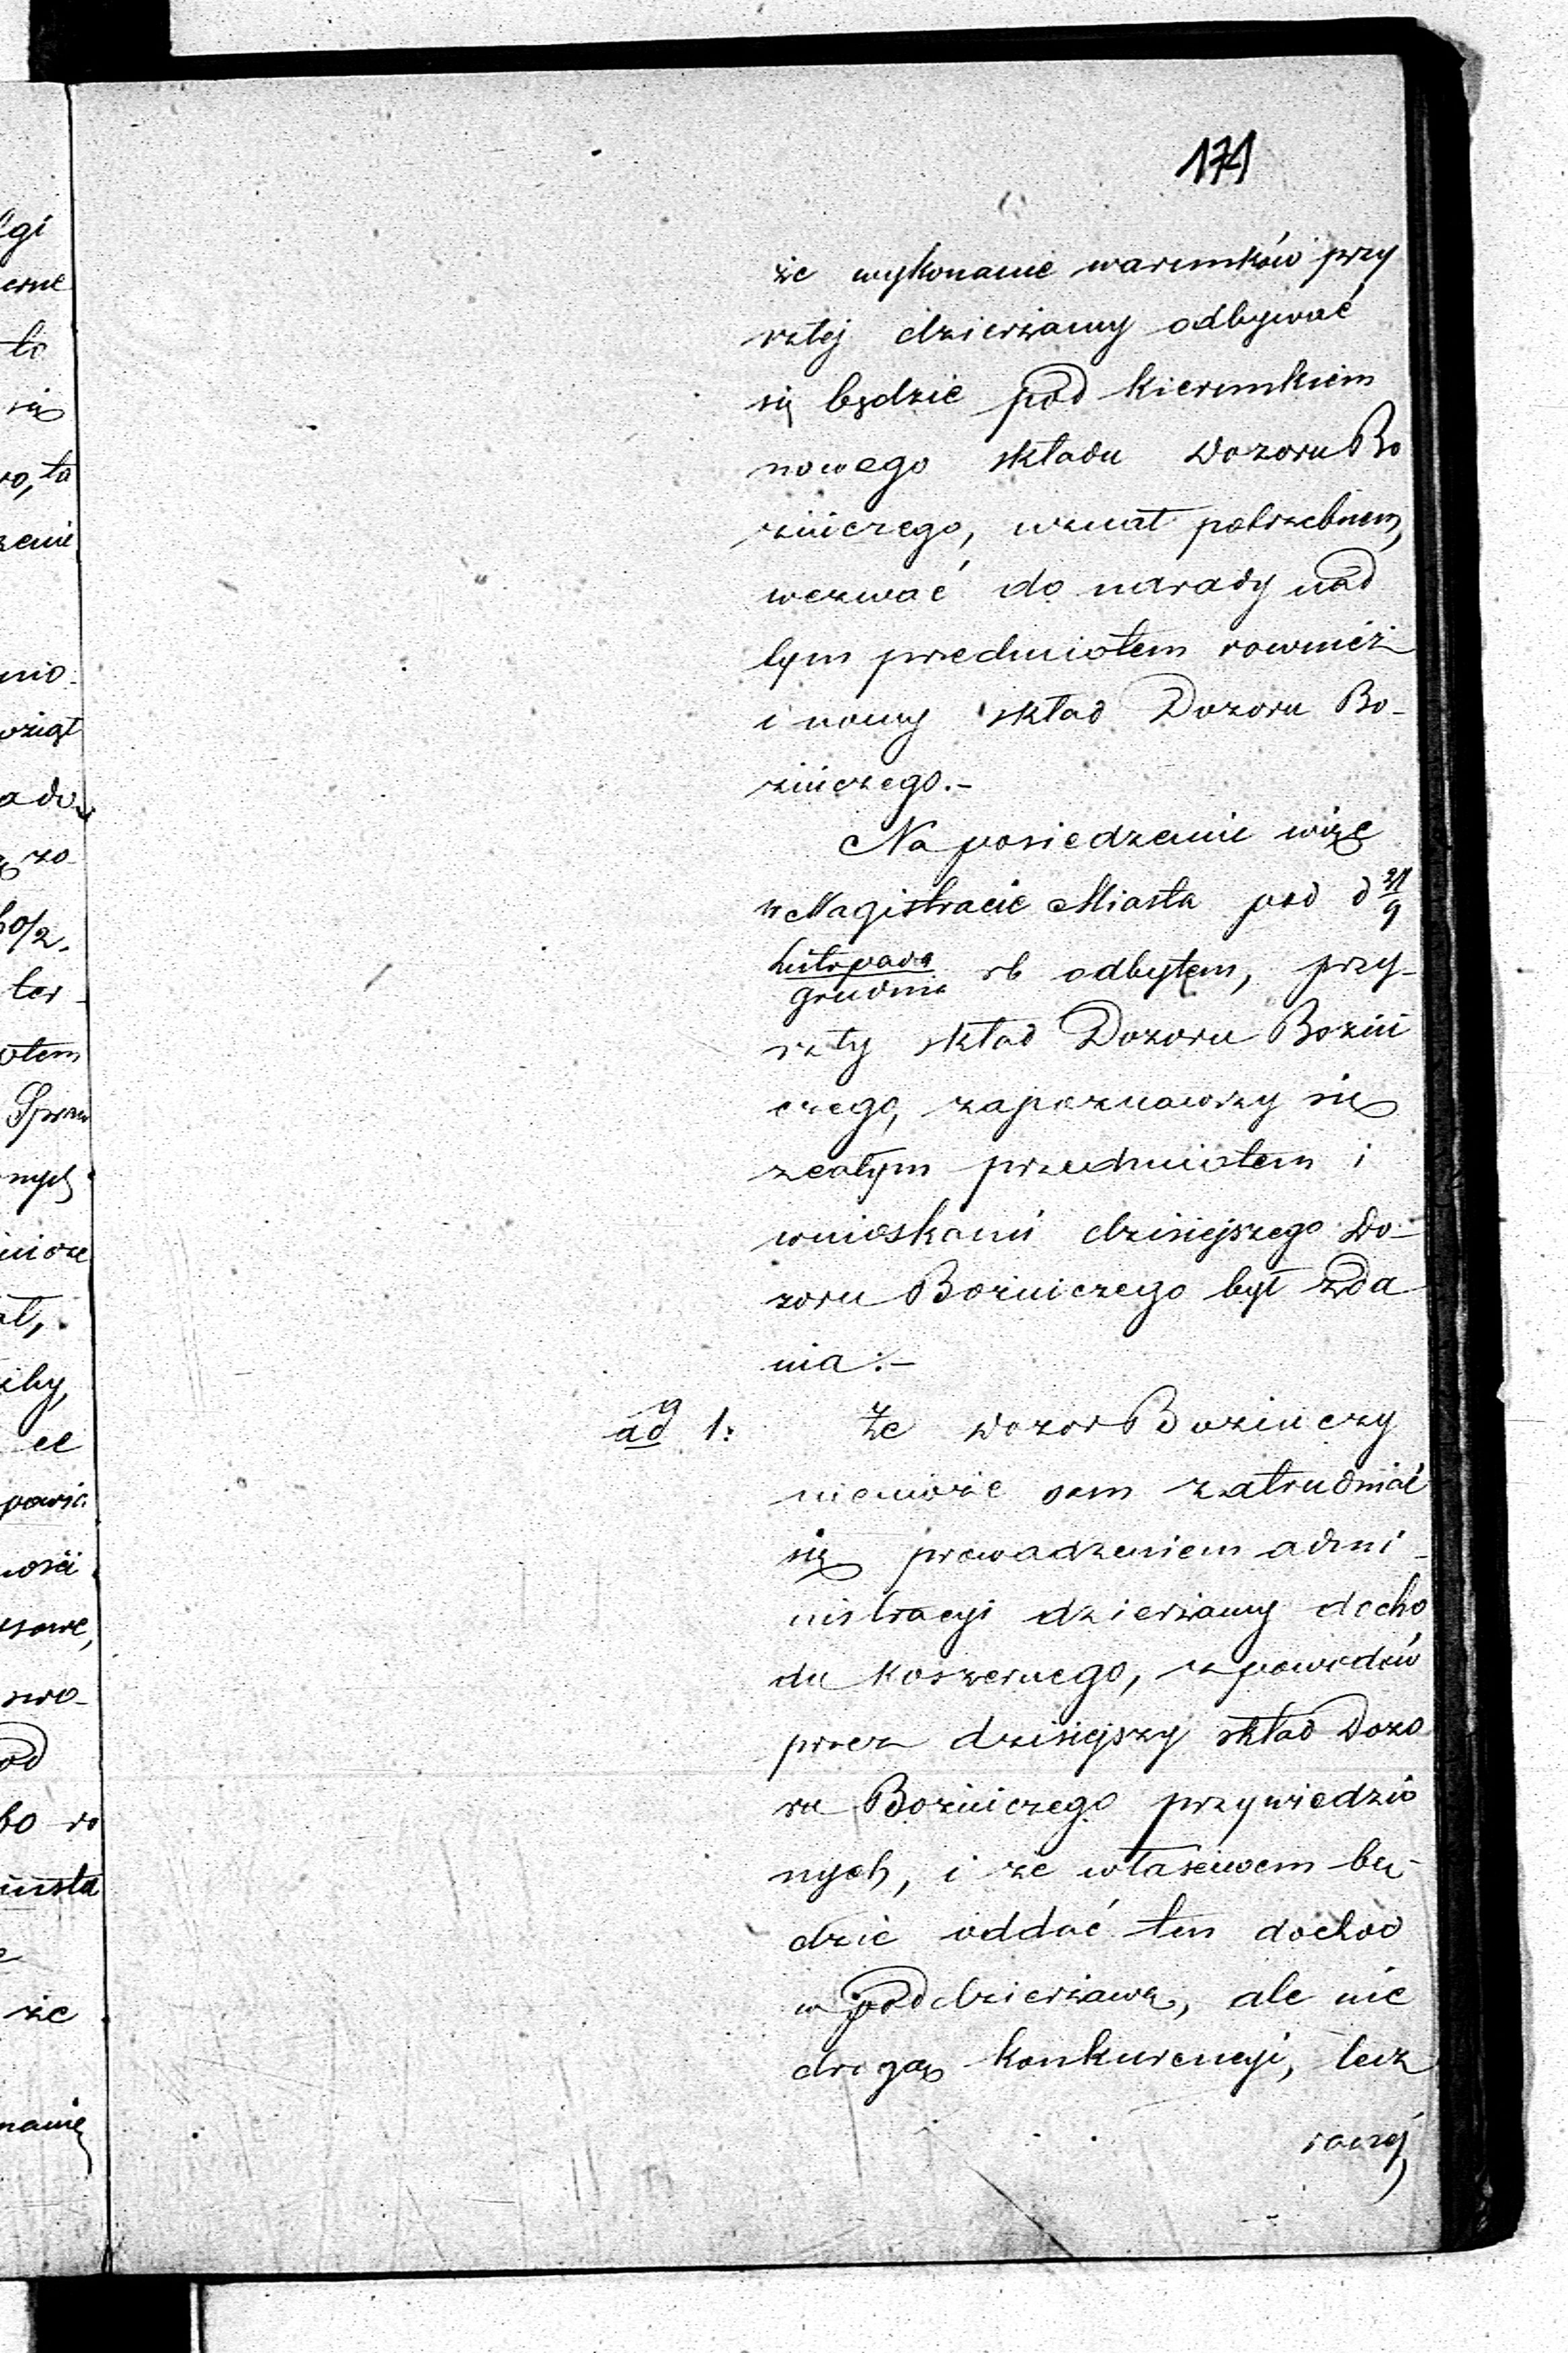 171
że wykonanie warunków przy
szłej dzierżawy odbywać
się będzie pod kierunkiem
nowego składu Dozoru Bo
żniczego, uznał potrzebnem,
wezwać do narady nad
tym przedmiotem również
i nowy skład Dozoru Bo-
żniczego.-
Na posiedzeniu więc
w Magistracie Miasta pod d 27/9
Listopada/Grudnia rb odbytem, przy-
szły skład Dozoru Bożni
czego, zapoznawszy się
z całym przedmiotem i
wnioskami dzisiejszego Do-
zoru Bożniczego był zda
nia:-
ad 1: Że Dozor Bożniczy
niemoże sam zatrudniać
się prowadzeniem admi-
nistracyi dzierżawy docho
du koszernego, z powodów
przez dzisiejszy skład Dozo
ru Bożniczego przywiedzio
nych, i że właściwem bę-
dzie oddać ten dochod
w poddzierżawę, ale nie
drogą konkurencyi, lecz
raczéj
lgi
erne
to
się
ro, ta
zenie
nio-
wziął
zo-
ter-
otem
Spraw
nych
ał,
ce
ności
sowe,
swo-
od
że